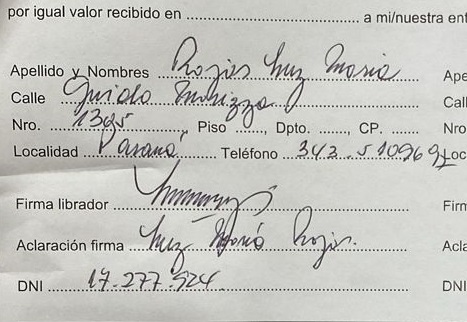 por igual valor recibido en ........ a mi/nuestra ent
Apellido y Nombres Rojas Luz Maria Ape
Calle Guido Marizza Call
Nro. 1395 Piso ......, Dpto. ......, CP. ...... Nro
Localidad Paraná Teléfono 343-5109691 Loc
Firma librador Firm
Aclaración firma Luz María Rojas. Acla
DNI 17.277.924 DNI